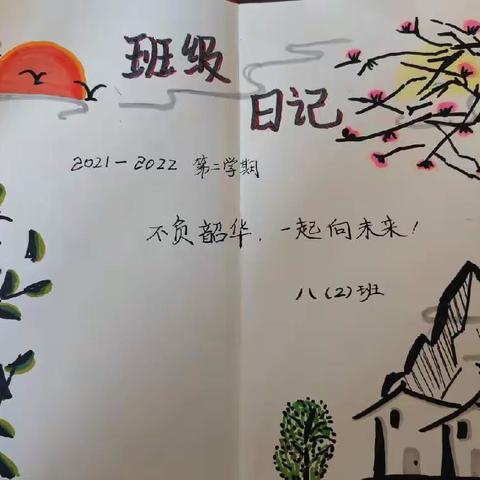 班级
日记
2021-2022 第二学期
不负韶华，一起向未来！
八（2）班